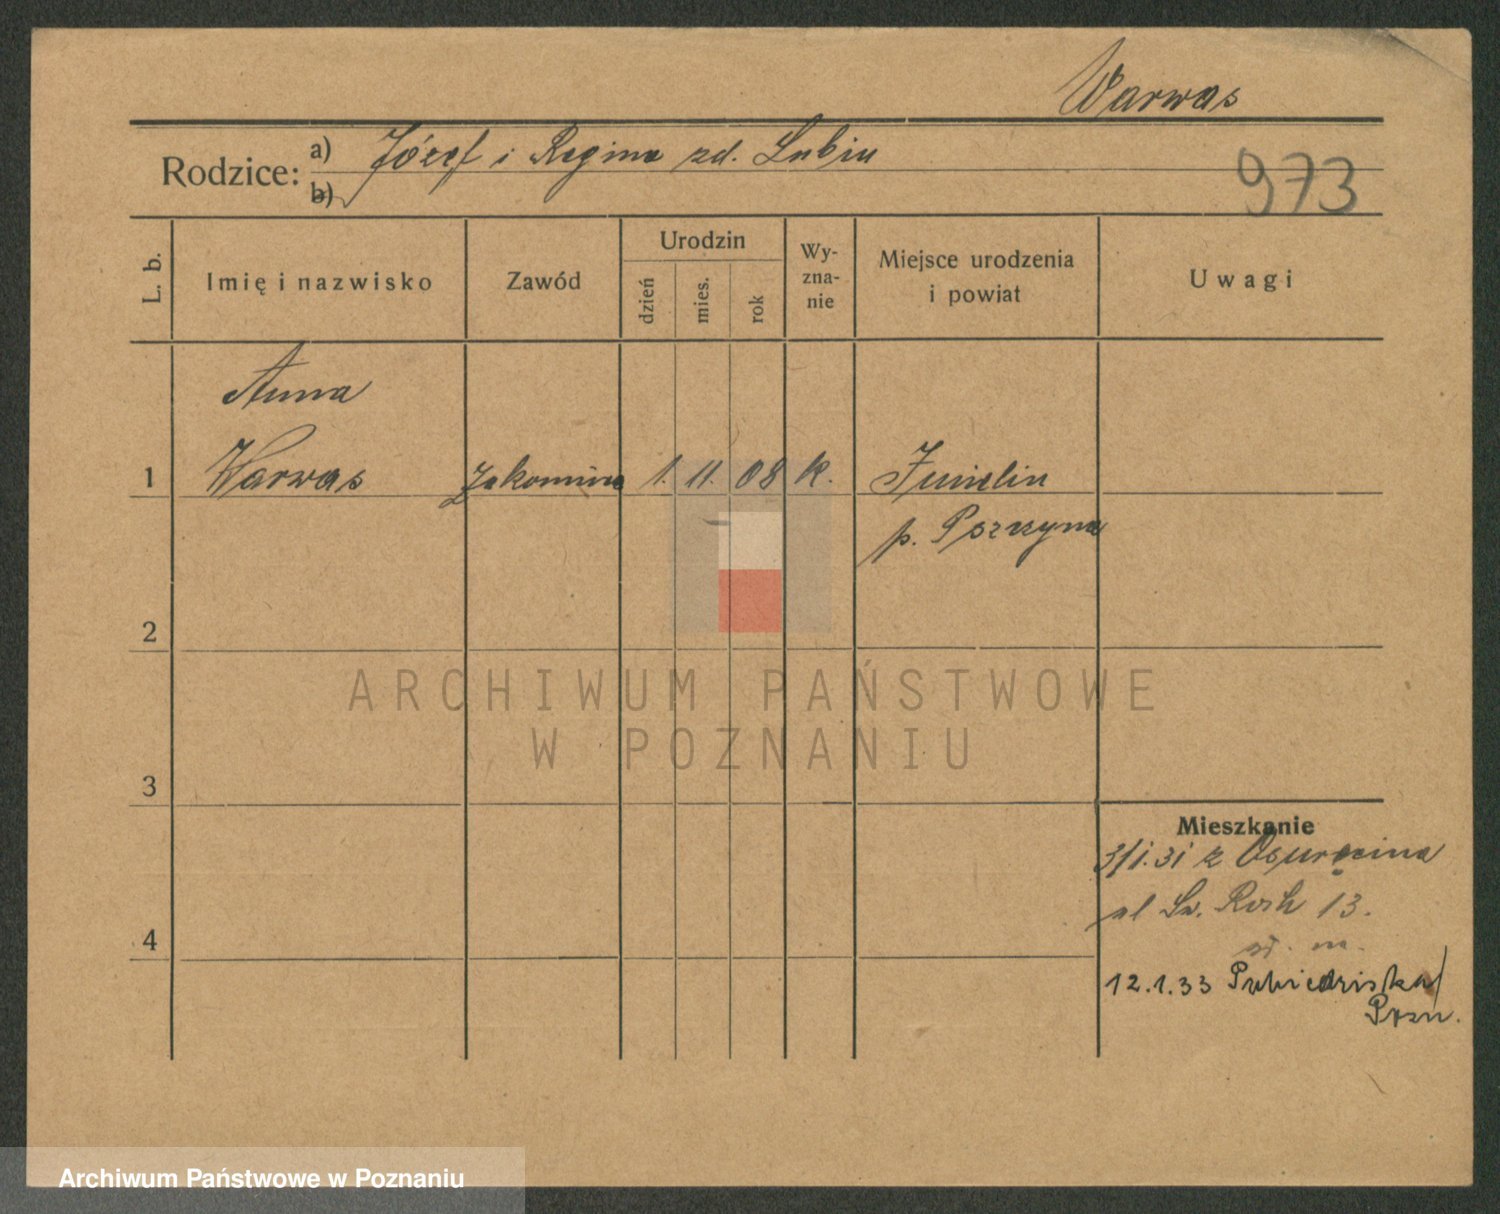 Warwas
Rodzice: a) Józef i Regina zd. Lubin
b)
973
L. b.
Imię i nazwisko
Zawód
Urodzin
dzień
mies.
rok
Wy-
zna-
nie
Miejsce urodzenia
i powiat
Uwagi
Anna
1 Warwas Zakonnica 1. 11. 08 k.
p.
2
ARCHIWUM PAŃSTWOWE
W POZNANIU
3
Mieszkanie
3/1.31 z
ul Św. Roch 13.
4
12.1.33 Pobiedziska/
Pozn.
Archiwum Państwowe w Poznaniu